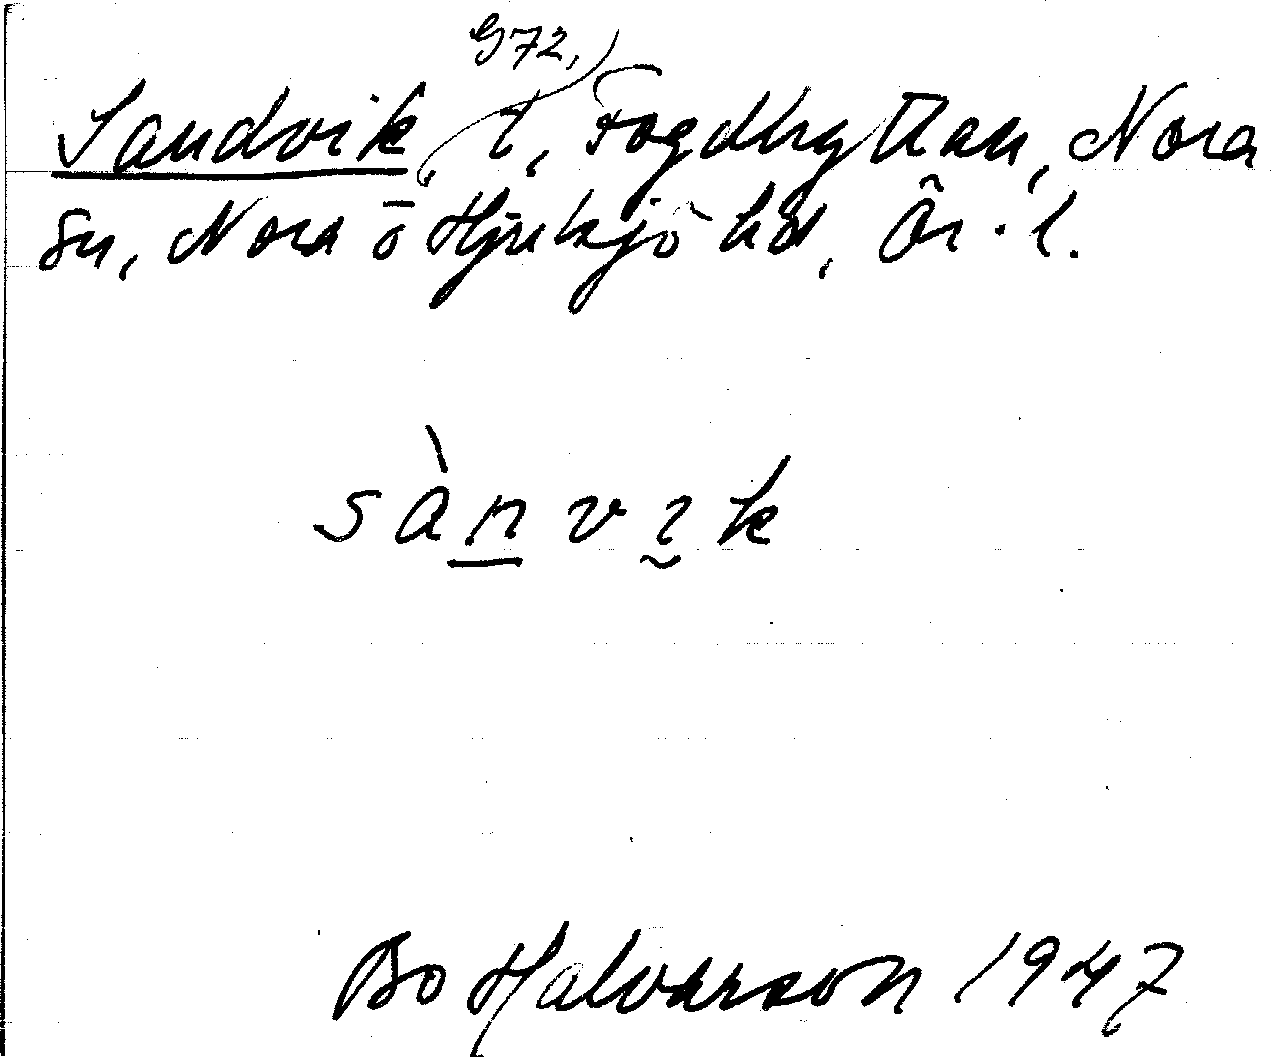 972,
Sandvik, t, Fogdhyttan, Nora
sn, Nora o Hjulsjö hd, Ör. l.
sànvik
Bo Halvarson 1947